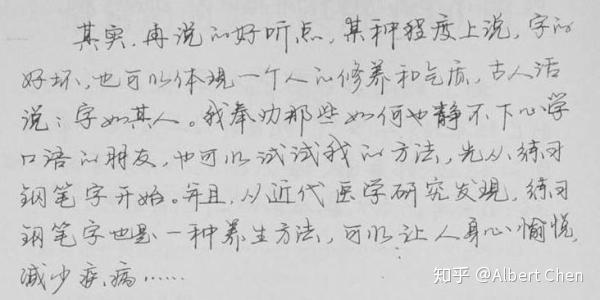 其实,再说的好听点,某种程度上说,字的
好坏,也可以体现一个人的修养和气质,古人活
说:字如其人。我奉劝那些如何也静不下心学
口语的朋友,也可以试试我的方法,先从练习
钢笔字开始。并且,从近代医学研究发现,练习
钢笔字也是一种养生方法,可以让人身心愉悦,
减少疾病……
知乎 @Albert Chen